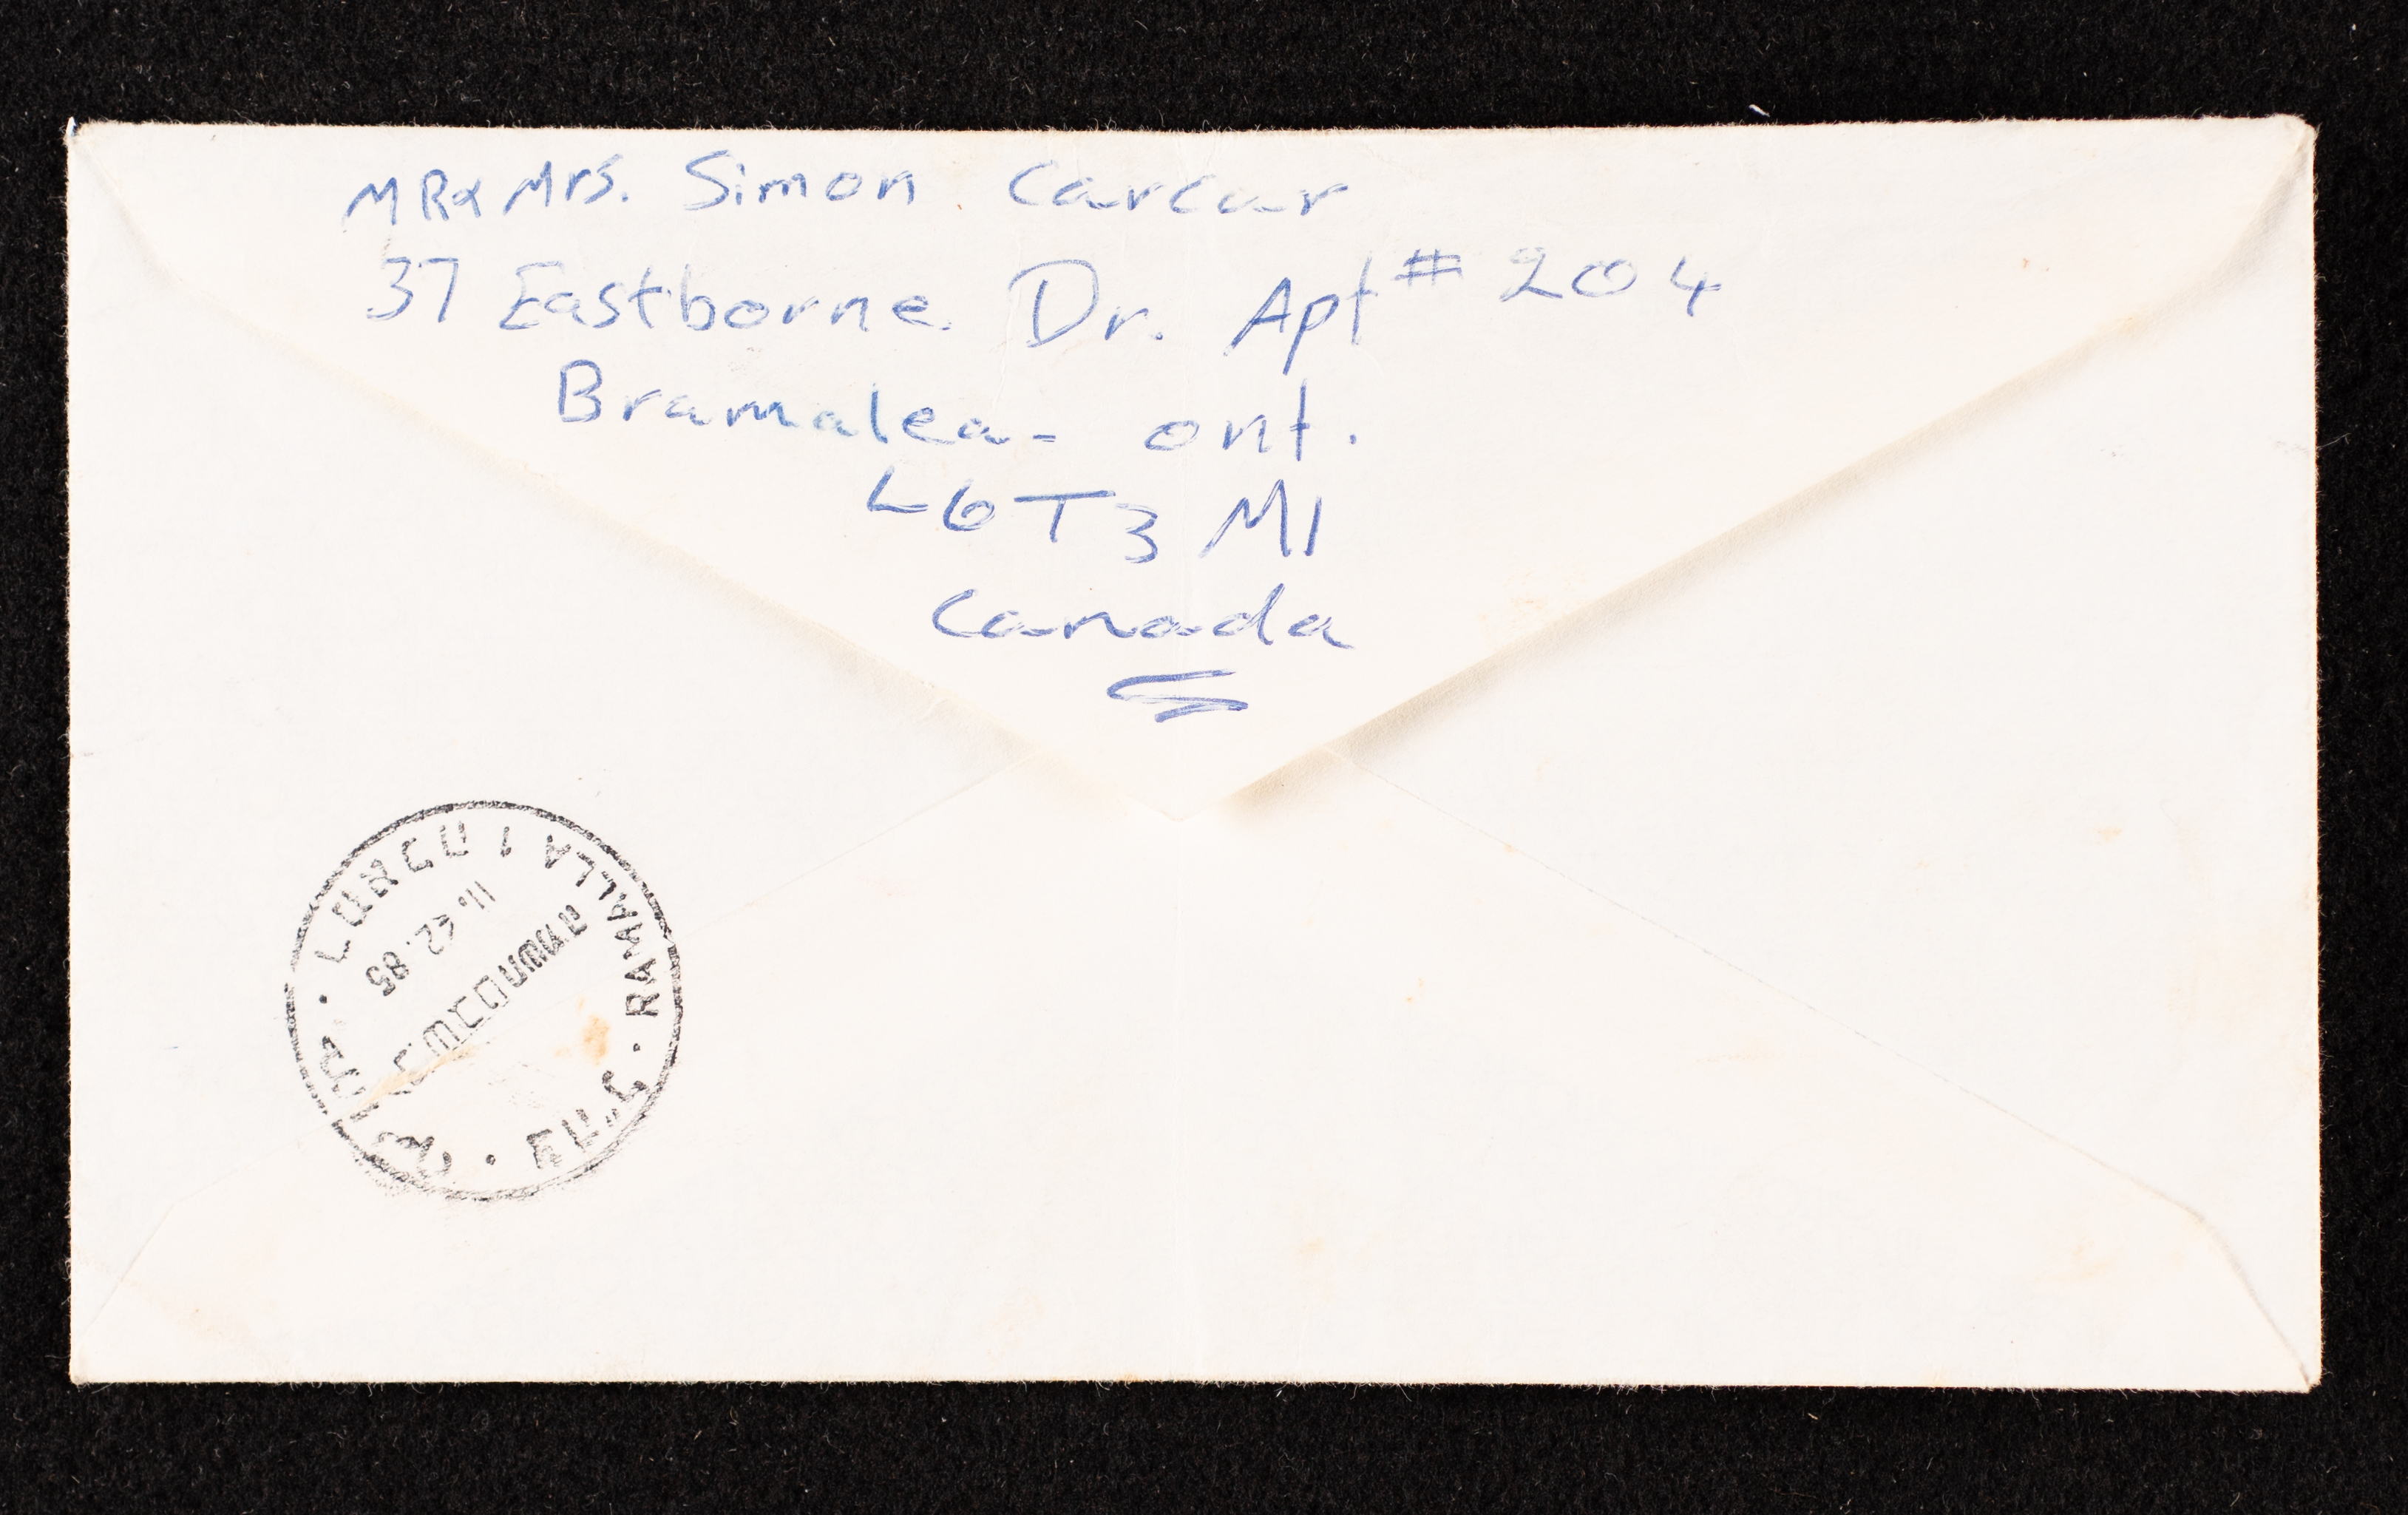 MR & Mrs. Simon Carcar
37 Eastborne Dr. Apt # 204
Bramalea - ont.
L6T3 M1
Canada
RAMALLA 1
85